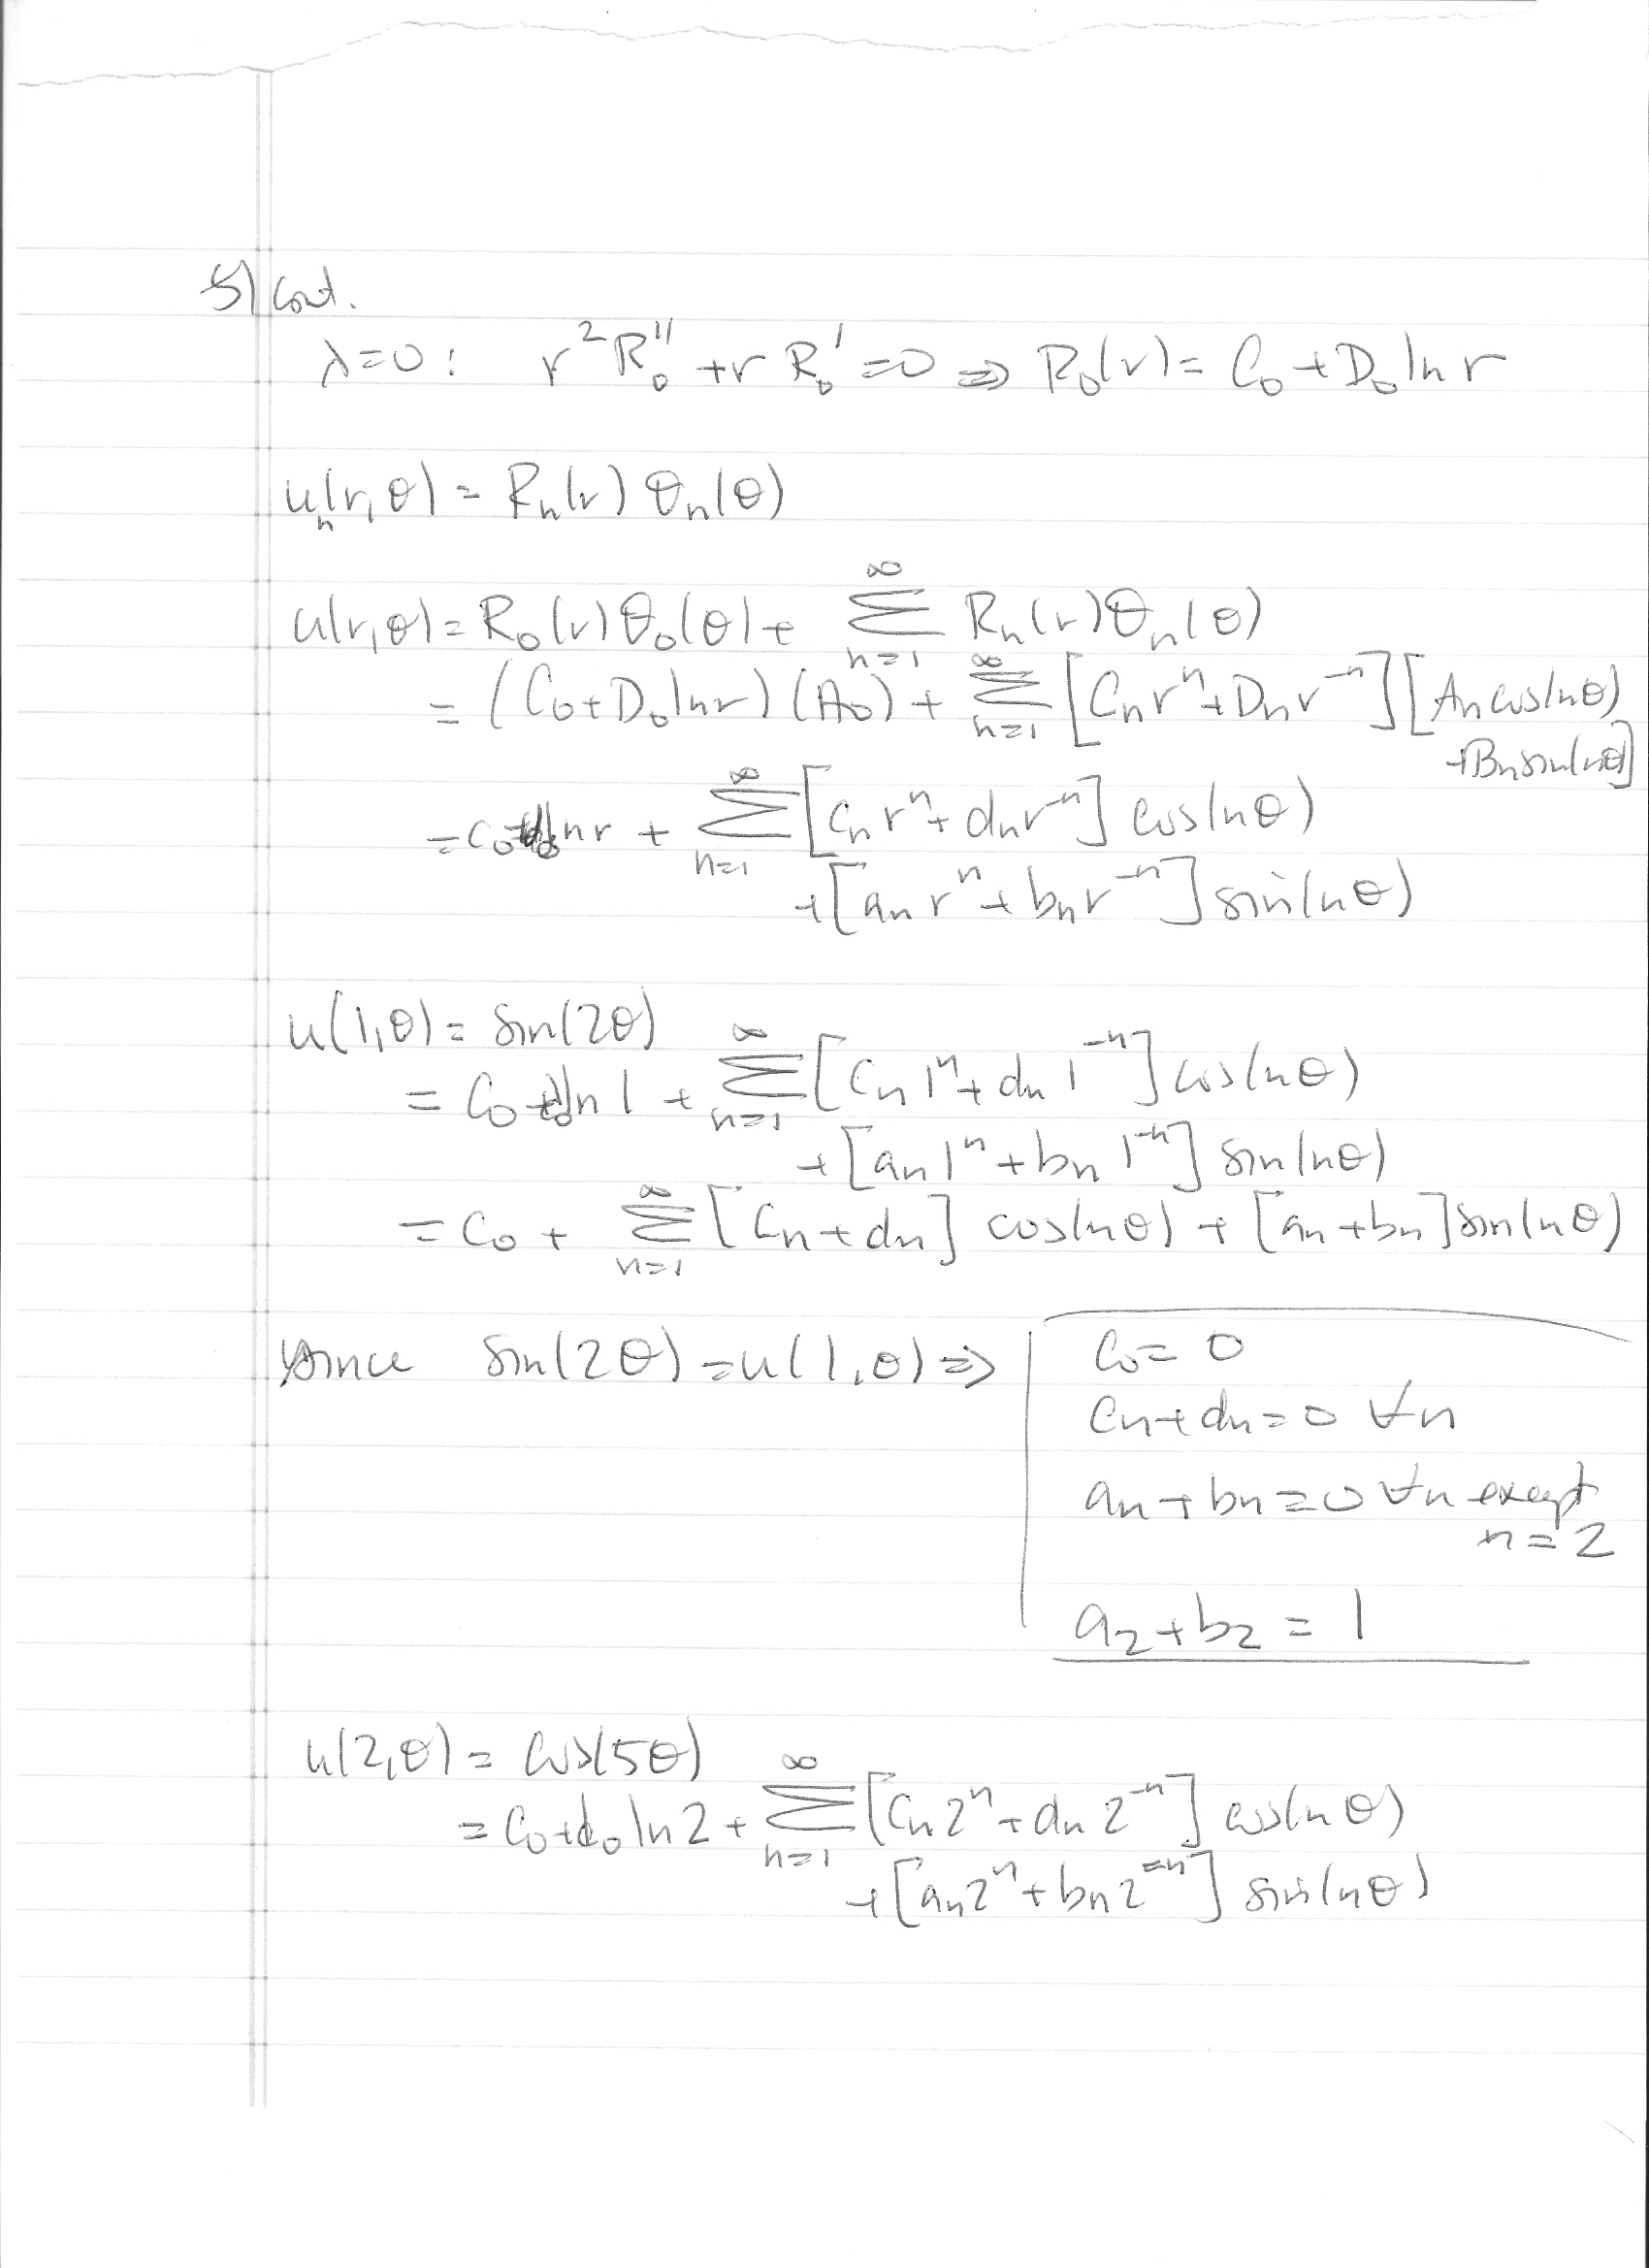 5) Cont.
λ=0: r²R₀'' + r R₀' = 0 ⇒ R₀(r) = C₀ + D₀ ln r
uₙ(r,θ) = Rₙ(r) Θₙ(θ)
u(r,θ) = R₀(r)Θ₀(θ) + ∑_{n=1}^{∞} Rₙ(r)Θₙ(θ)
= (C₀ + D₀ ln r)(A₀) + ∑_{n=1}^{∞} [Cₙ rⁿ + Dₙ r⁻ⁿ][Aₙ cos(nθ)
+ Bₙ sin(nθ)]
= c₀ + d₀ ln r + ∑_{n=1}^{∞} [cₙ rⁿ + dₙ r⁻ⁿ] cos(nθ)
+ [aₙ rⁿ + bₙ r⁻ⁿ] sin(nθ)
u(1,θ) = sin(2θ)
= c₀ + d₀ ln 1 + ∑_{n=1}^{∞} [cₙ 1ⁿ + dₙ 1⁻ⁿ] cos(nθ)
+ [aₙ 1ⁿ + bₙ 1⁻ⁿ] sin(nθ)
= c₀ + ∑_{n=1}^{∞} [cₙ + dₙ] cos(nθ) + [aₙ + bₙ] sin(nθ)
since sin(2θ) = u(1,θ) ⇒ c₀ = 0
cₙ + dₙ = 0 ∀n
aₙ + bₙ = 0 ∀n except
n = 2
a₂ + b₂ = 1
u(2,θ) = cos(5θ)
= c₀ + d₀ ln 2 + ∑_{n=1}^{∞} [cₙ 2ⁿ + dₙ 2⁻ⁿ] cos(nθ)
+ [aₙ 2ⁿ + bₙ 2⁻ⁿ] sin(nθ)